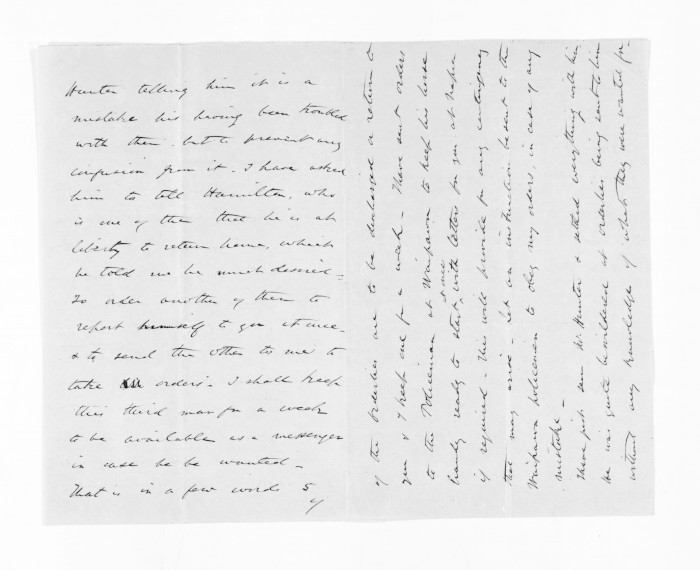 Hunter telling him it is a
mistake his having been troubled
with them. but to prevent any
confusion from it. I have asked
him to tell Hamilton, who
is one of them that he is at
liberty to return home, which
he told me he much desired -
To order another of them to
report himself to you at once -
& to send the other to me to
take orders. I shall keep
this third man for a week
to be available as a messenger
in case he be wanted -
That is in a few words 5
of
of the orderlies are to be discharged & return to
you & I keep one for a week - I have sent orders
to the Policeman at Waipawa to keep his horse
handy ready to start at once with letters for you at Napier
if required - This will provide for any contingency
that may arise - Let an instruction be sent to the
Waipawa policeman to obey my orders, in case of any
mistake -
I have just seen Mr Hunter & settled everything with him
He was quite bewildered at orderlies being sent to him
without any knowledge of what they were wanted for